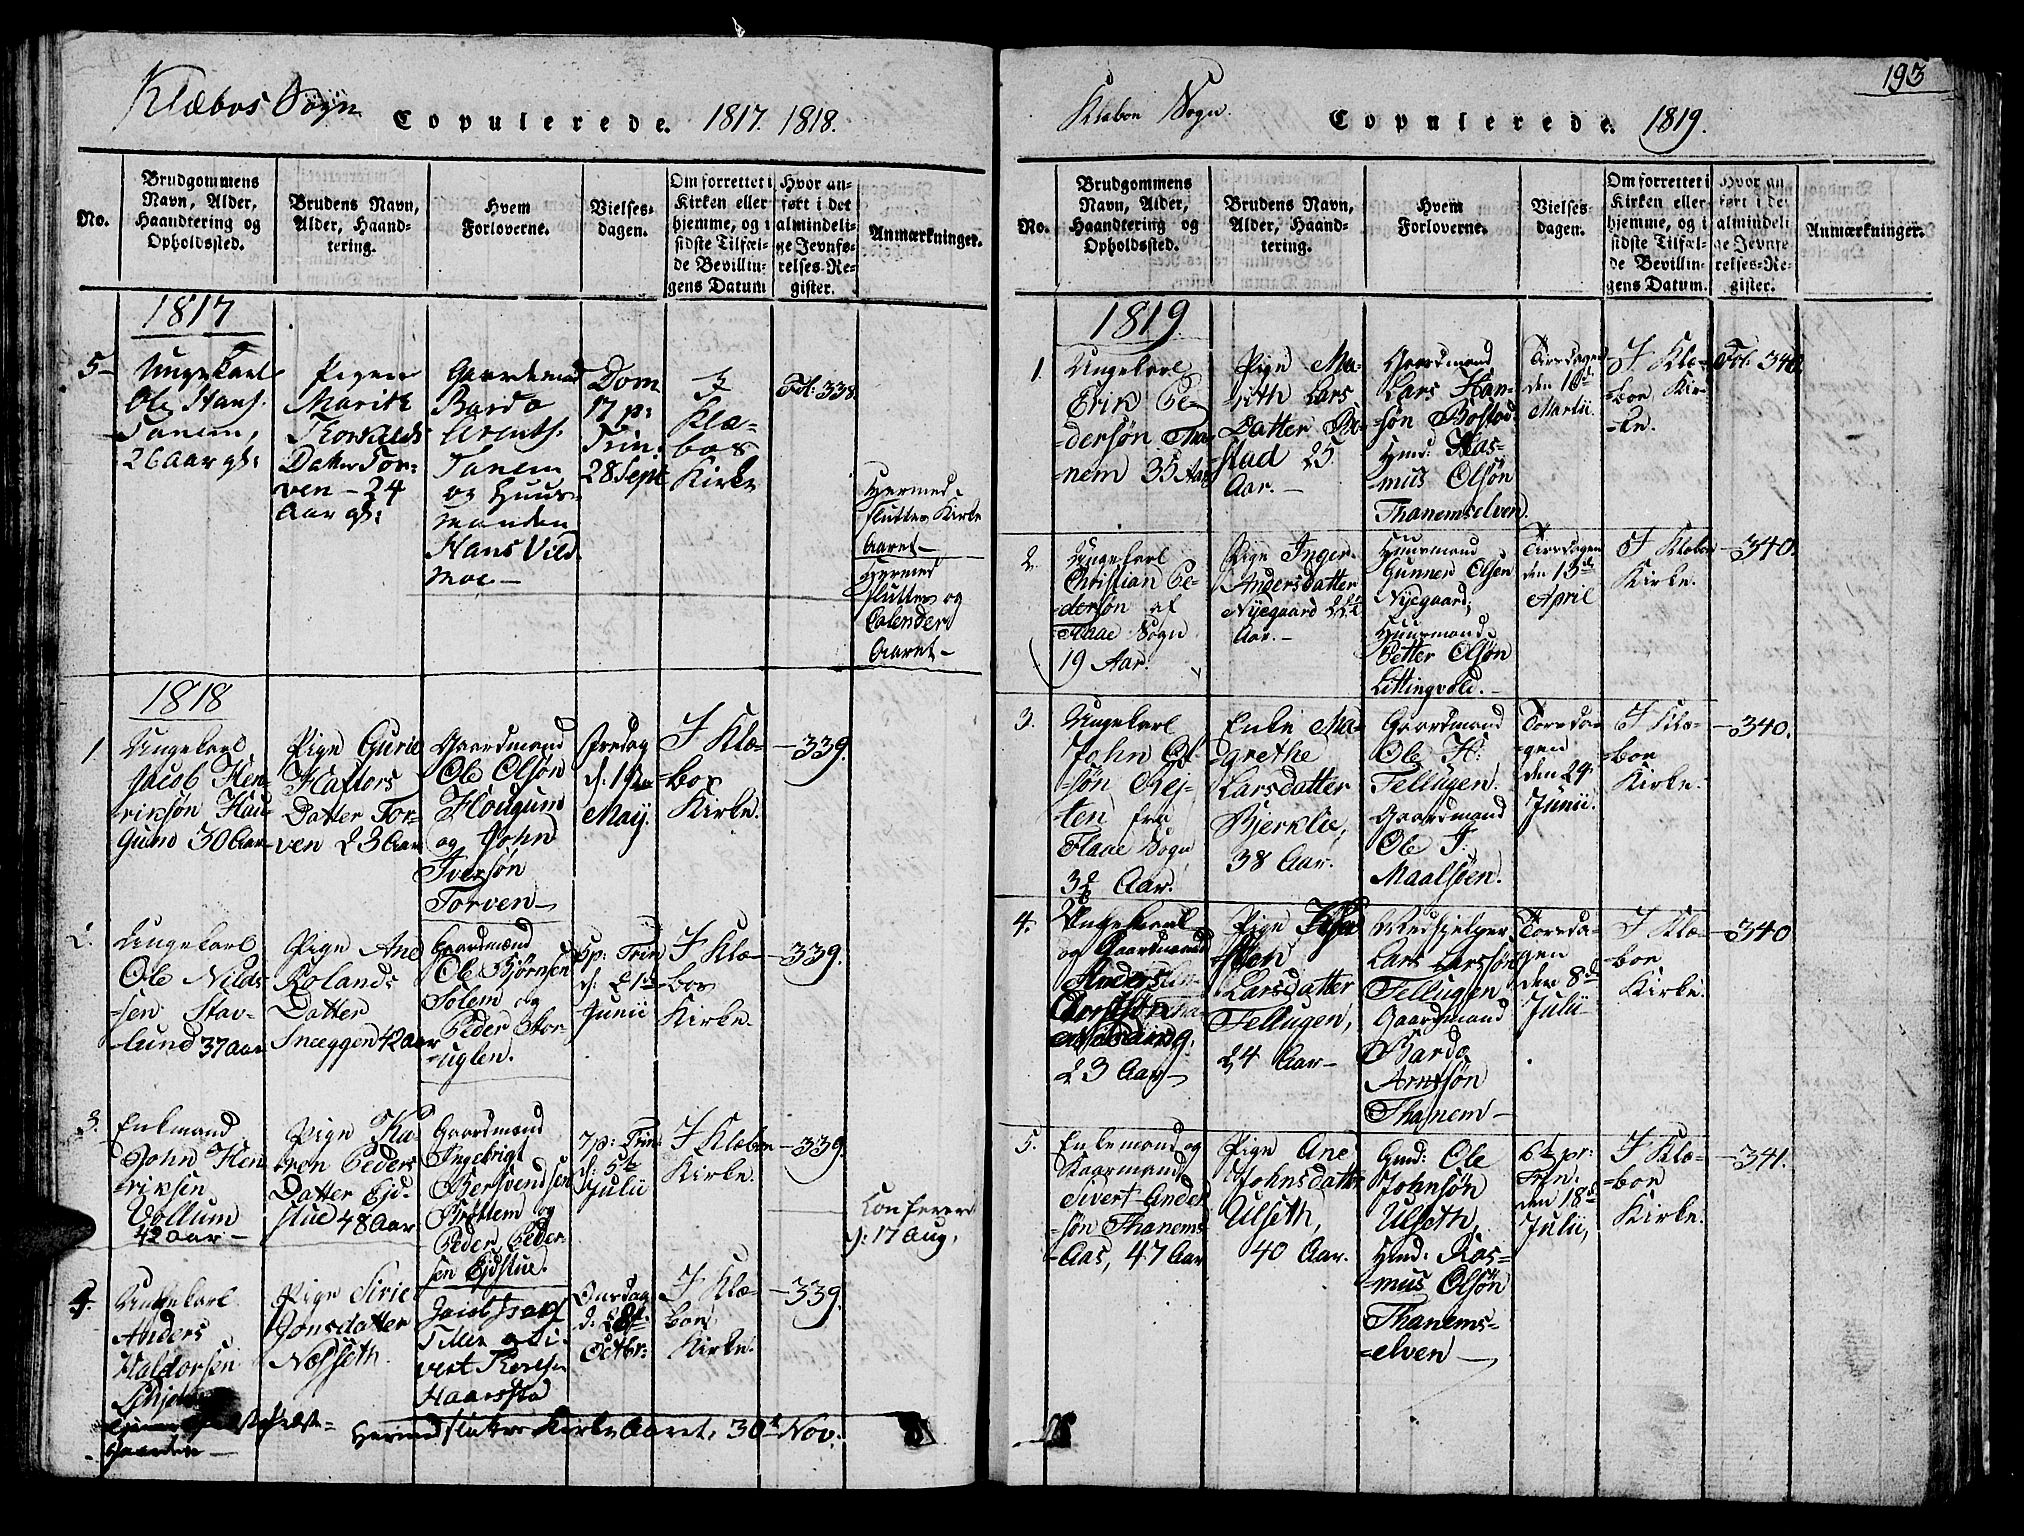 Klæboe Sogn
Copulerede. 1817. 1818.
No.
Brudgommens
Navn, Alder,
Haandtering og
Opholdssted.
Brudens Navn,
Alder, Haand-
tering.
Hvem
Forloverne.
Vielses-
dagen.
Om forrettet i
Kirken eller
hjemme, og i
sidste Tilfæl-
de Bevillin-
gens Datum
Hvor an-
ført i det
almindeli-
ge Jevnfø-
relses-Re-
gister.
Anmærkninger.
1817
5
Ungekarl
Ole Hans:
Tanem,
26 Aar gl:
Pigen
Marith
Thorvalds
Datter Tor-
ven - 24
Aar gl:
Gaardmand
Bardo
Arnts:
Tanem
og Huus-
manden
Hans Vild
moe -
Dom
17 p:
Trin:
28 Sept
I
Klæ-
boe
Kirke
Fol: 338.
Hermed
slutter Kirke
Aaret -
Hermed
slutter og
Calender
Aaret -
1818
1
Ungekarl
Jacob Hen-
riksøn Hau-
Gund 30 Aar
Pige Gurie
Haftors
Datter Tor-
ven 23 Aar
Gaardmand
Ole Olsøn
Hougum
og John
Iversøn
Torven -
Fredag
d: 1ste
Maij.
I Klæ-
boe
Kirke.
- 339.
2.
Ungekarl
Ole Nilds-
sen Stav-
lund 37 Aar
Pige Ane
Rolands
Datter
Sneggen 42 Aar
Gaardmænd
Ole Bjørnsen
Solem og
Peder Stor-
uglen.
5 p: Trin
d: 21de
Junii
I Klæ-
boe
Kirke.
- 339.
3.
Enkmand
John Hen-
riksen
Vollum
42 Aar -
Pige Ka-
ren Peders
Datter Ejd-
stue 48 Aar
Gaardmænd
Ingebrigt
Bersvendsen
Brøttem og
Peder Peder-
sen Ejdstue.
7 p: Trin
d: 5te
Julii
I Klæboe
Kirke.
- 339.
Confereret
d: 17 Aug.
4.
Ungekarl
Anders
Haldorsen
Pige Sirie
Jonsdatter
Nesseth.
Jacob
Tiller og Si-
vert
Haarstad
Onsdag
d: 28
Octbr:
I Klæ-
boe
Kirke.
- 339.
Hermed slutter Kirke Aaret, 30t Nov:
193
Klæboe Sogn.
Copulerede. 1819.
No.
Brudgommens
Navn, Alder,
Haandtering og
Opholdssted.
Brudens Navn,
Alder, Haand-
tering.
Hvem
Forloverne.
Vielses-
dagen.
Om forrettet i
Kirken eller
hjemme, og i
sidste Tilfæl-
de Bevillin-
gens Datum.
Hvor an
ført i det
almindeli
ge Jevnfø
relses-Re-
gister.
Anmærkninger.
1819
1.
Ungekarl
Erik Pe-
-dersøn Tha-
nem 35 Aar
Pige Ma-
rith Lars
Datter Bo-
stad 25
Aar. -
Gaardmand
Lars Han-
søn Bostad.
Huusmd: Ras-
mus Olsøn
Thanemselven.
Tirsdagen
den 16de
Martii.
I Klæ-
-boe Kir-
ke.
Fol. 340.
2.
Ungekarl
Christian Pe-
-dersøn af
Flaae Sogn
19 Aar.
Pige Inger
Andersdatter
Nyegaard 22½
Aar. -
Huusmand
Gunner Olsen
Nyegaard;
Huusmand
Petter Olsøn
Littingvold. -
Tirsdagen
den 13de
April
I Klæboe
Kirke.
- 340.
3.
Ungekarl
John Ol-
søn Rej-
ten fra
Flaae Sogn
32 Aar.
Enke Ma-
grethe
Larsdatter
Bjerklie,
38 Aar.
Gaardmand
Ole H:
Tellugen.
Gaardmand
Ole J.
Maalsøen.
Torsda-
gen
den 24.
Junii.
I Klæ-
-boe
Kirke.
- 340.
4.
Ungekarl
og Gaardmand
Anders An-
23 Aar -
Pige
Larsdatter
Tellugen,
24 Aar -
Medhjelper
Lars Larssøn
Tellugen
Gaardmand
Bardo
Arntsøn
Thanem -
Torsda-
gen
den 8de
Julii
I Klæ-
boe
Kirke.
- 340
5.
Enkemand og
Gaardmand
Sivert Ander-
søn Thanems-
-Aas, 47 Aar
Pige Ane
Johnsdatter
Ulseth,
40 Aar.
Gmd: Ole
Johnsøn
Ulseth,
Hmd: Ras-
-mus Olsøn
Thanems-
-elven -
6te p:
Trin:
den 18de
Julii,
I Klæ-
-boe
Kirke.
- 341.